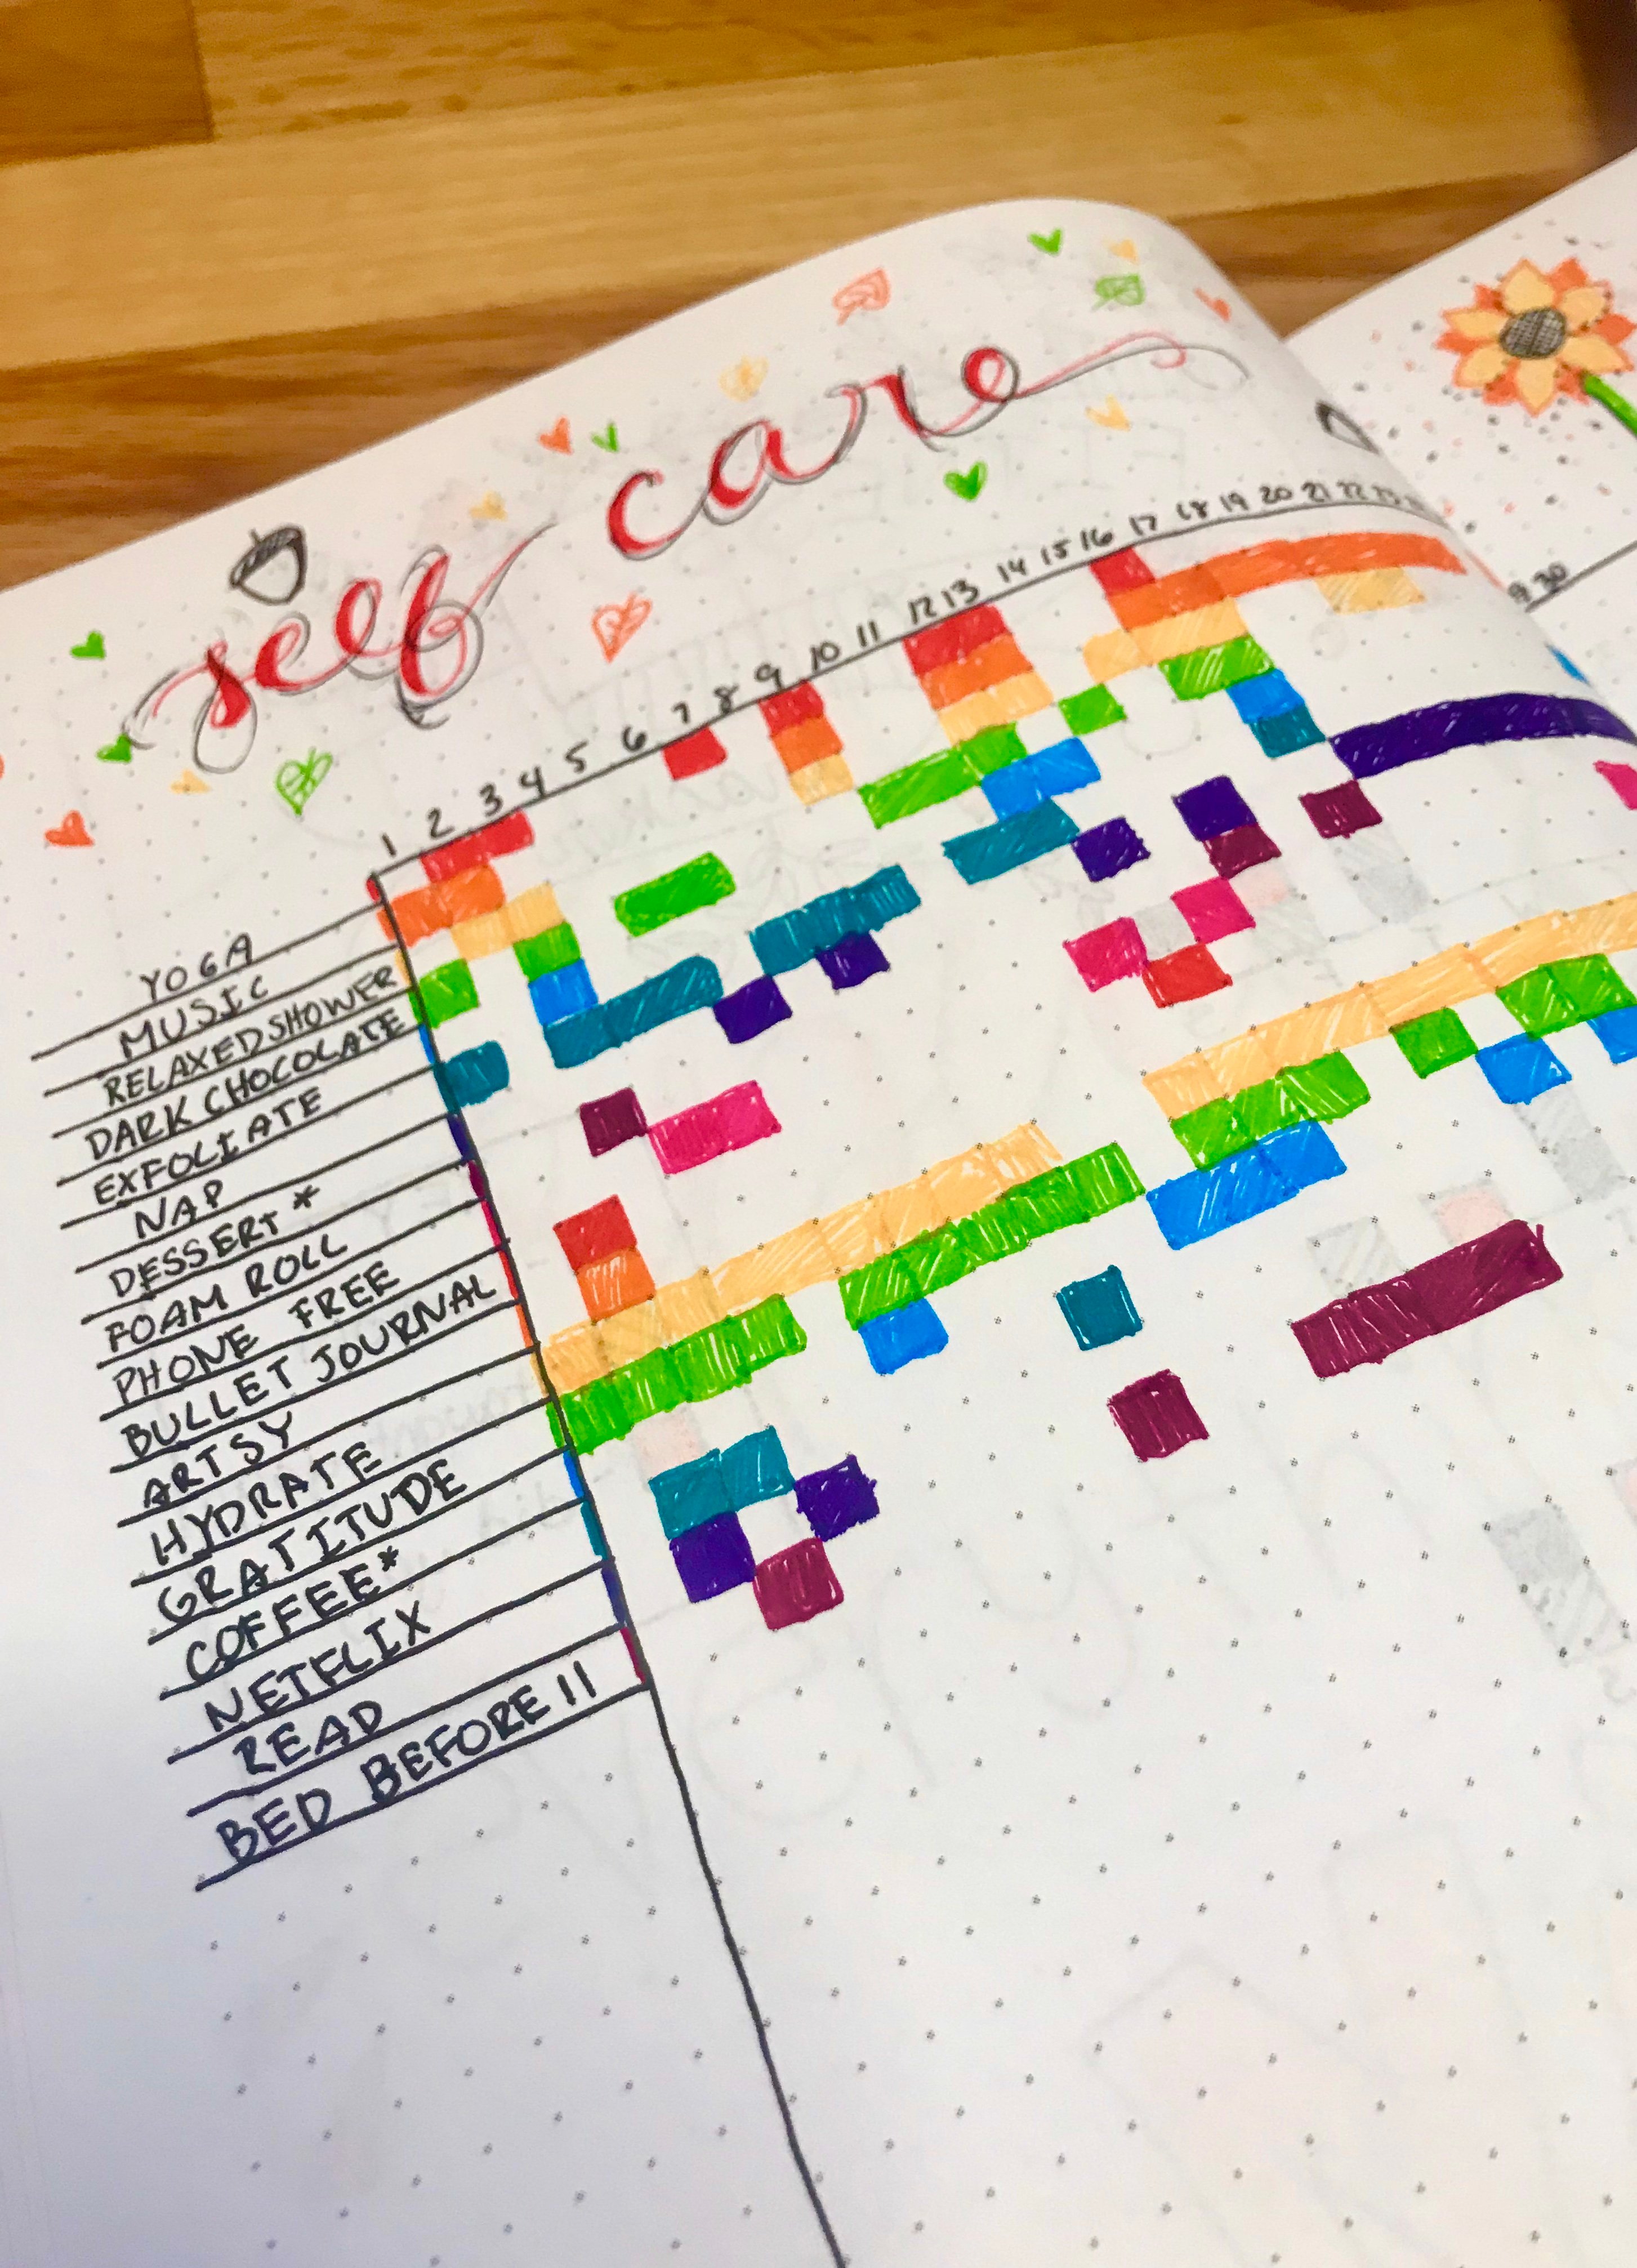 self care
1 2 3 4 5 6 7 8 9 10 11 12 13 14 15 16 17 18 19 20 21 22 23
30
YOGA
MUSIC
RELAXED SHOWER
DARK CHOCOLATE
EXFOLIATE
NAP
DESSERT *
FOAM ROLL
PHONE FREE
BULLET JOURNAL
ARTSY
HYDRATE
GRATITUDE
COFFEE*
NETFLIX
READ
BED BEFORE 11